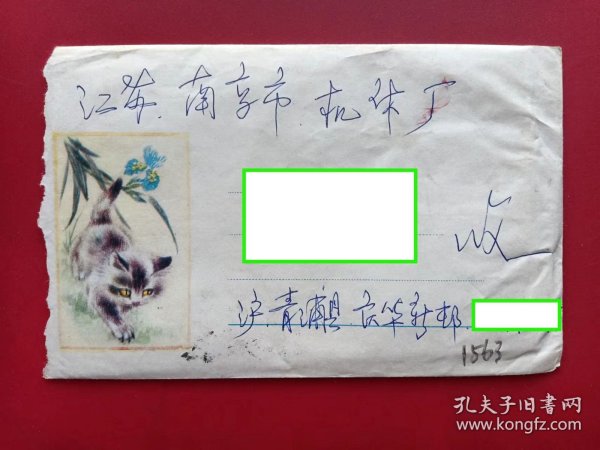 江苏.南京市.机床厂
收
沪.青浦县 农华新邨.
1563
孔夫子旧书网
www.kongfz.com